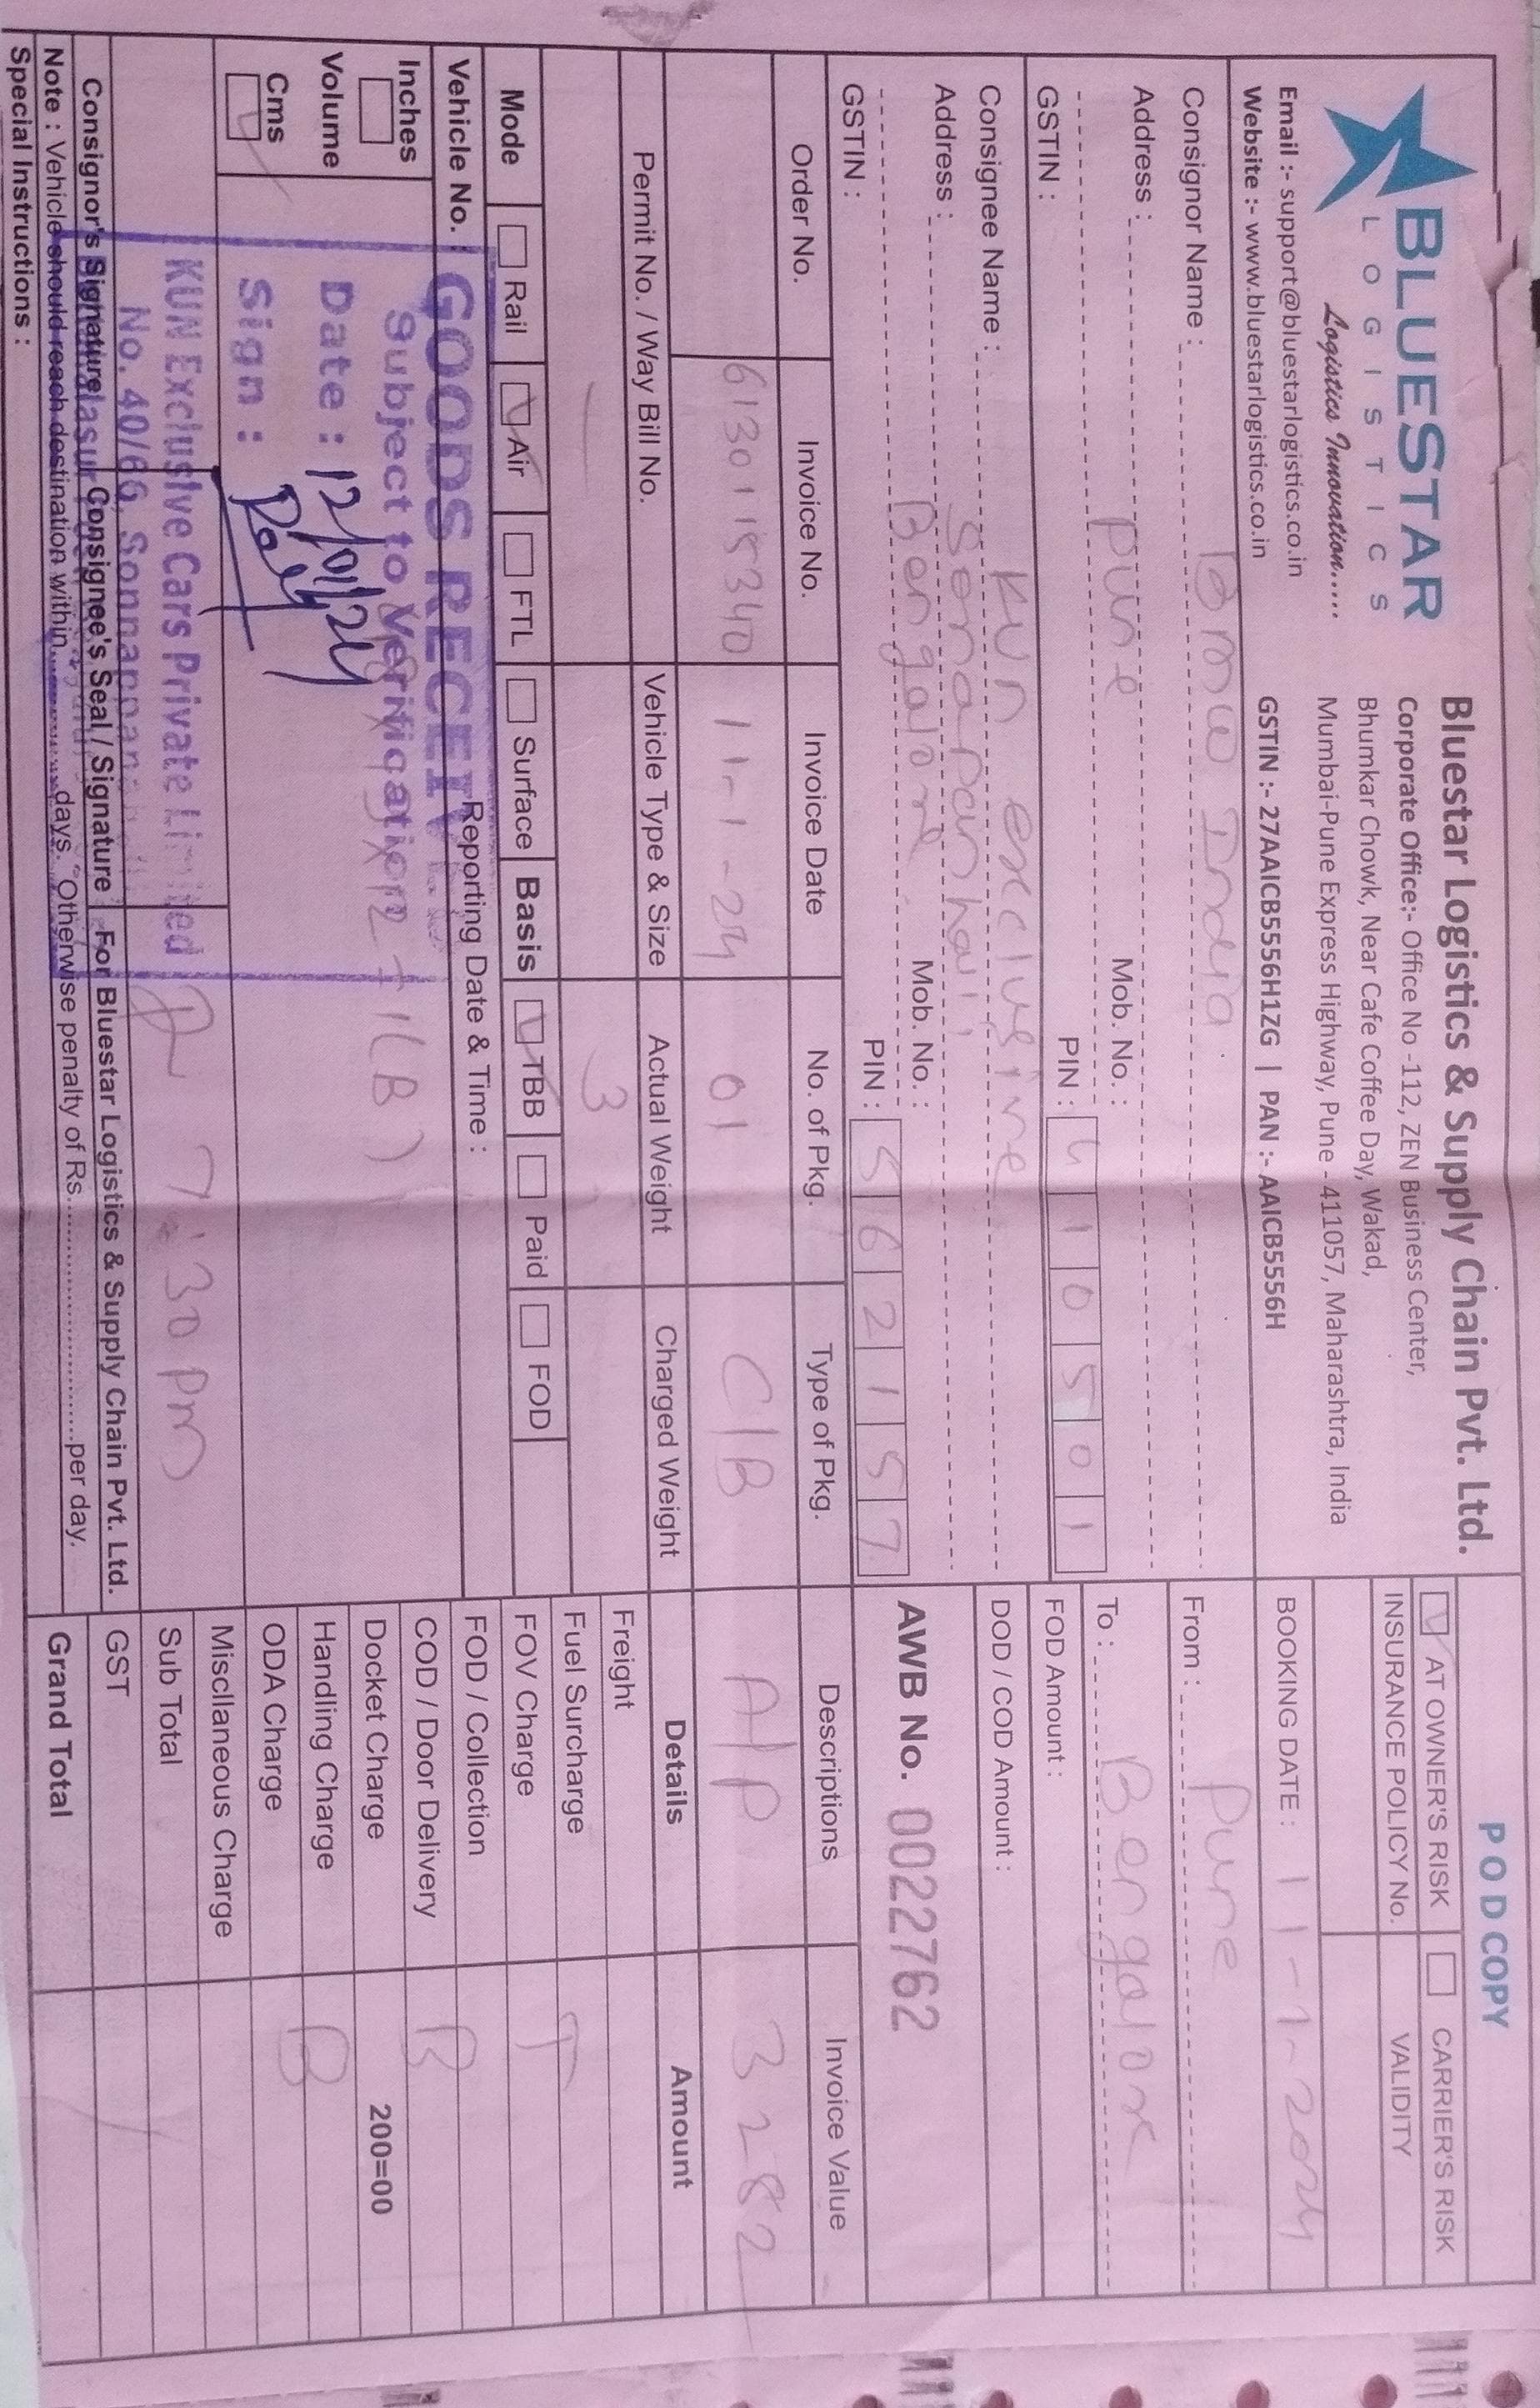 BLUESTAR
LOGISTICS
Logistics Innovation.....
Email :- support@bluestarlogistics.co.in
Website :- www.bluestarlogistics.co.in
Bluestar Logistics & Supply Chain Pvt. Ltd.
Corporate Office:- Office No -112, ZEN Business Center,
Bhumkar Chowk, Near Cafe Coffee Day, Wakad,
Mumbai-Pune Express Highway, Pune - 411057, Maharashtra, India
GSTIN :- 27AAICB5556H1ZG | PAN :- AAICB5556H
POD COPY
AT OWNER'S RISK CARRIER'S RISK
INSURANCE POLICY No. VALIDITY
BOOKING DATE : 11-1-2024
Consignor Name : BMW India
Address :
Pune Mob. No. :
PIN : 410501
GSTIN :
From : Pune
To : Bengalore
FOD Amount :
DOD / COD Amount :
Consignee Name : KUN exclusive
Address :
Bengalore Mob. No. :
PIN : 562157
GSTIN :
AWB No. 0022762
Order No. Invoice No. Invoice Date No. of Pkg. Type of Pkg. Descriptions Invoice Value
6130115340 11-1-24 01 C/B A/P 3282
Permit No. / Way Bill No. Vehicle Type & Size Actual Weight Charged Weight
3
Mode Rail Air FTL Surface Basis TBB Paid FOD
Vehicle No. Reporting Date & Time :
Details Amount
Freight
Fuel Surcharge T
FOV Charge
FOD / Collection
COD / Door Delivery B
Docket Charge 200=00
Handling Charge B
ODA Charge
Miscllaneous Charge
Sub Total
GST
Grand Total
Inches
Volume
Cms
GOODS RECEIVED
Subject to Verification
Date : 12/01/24
Sign :
KUN Exclusive Cars Private Limited
No. 40/66,
x12-1(B)
7:30 pm
Consignor's Signature Consignee's Seal / Signature For Bluestar Logistics & Supply Chain Pvt. Ltd.
Note : Vehicle should reach destination within............days. Otherwise penalty of Rs............................per day.
Special Instructions :